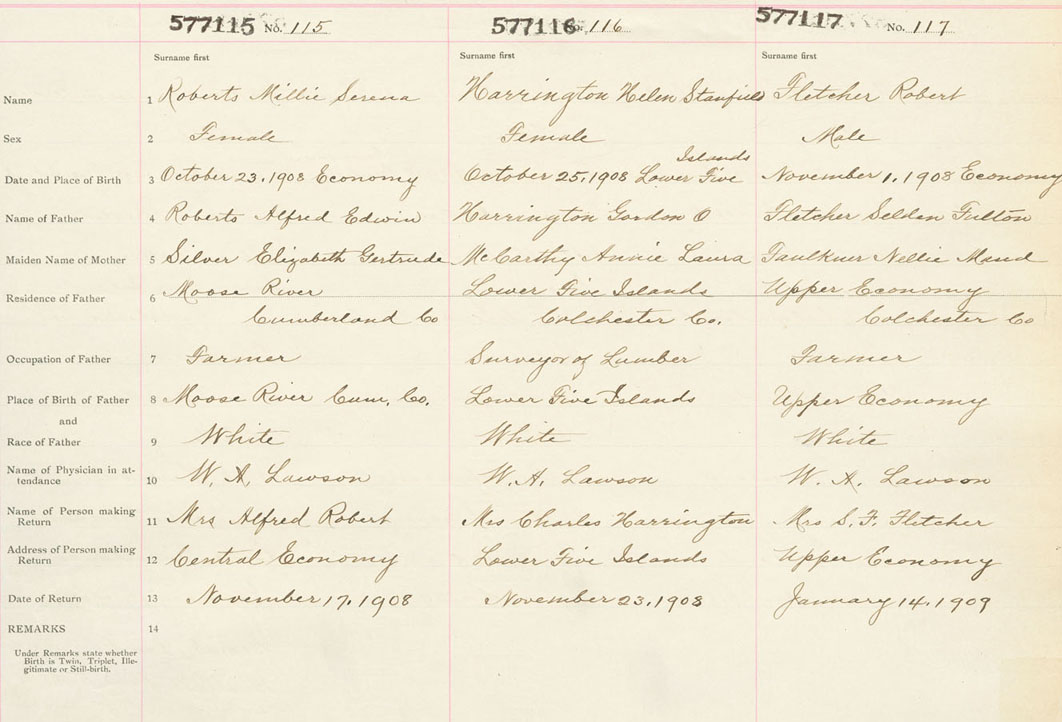 577115 No. 115 577116 No. 116 577117 No. 117
Surname first Surname first Surname first
Name 1 Roberts Millie Serena Harrington Helen Stanfield Fletcher Robert
Sex 2 Female Female Male
Islands
Date and Place of Birth 3 October 23, 1908 Economy October 25, 1908 Lower Five November 1, 1908 Economy
Name of Father 4 Roberts Alfred Edwin Harrington Gordon O Fletcher Selden Fulton
Maiden Name of Mother 5 Silver Elizabeth Gertrude McCarthy Annie Laura Faulkner Nellie Maud
Residence of Father 6 Moose River Lower Five Islands Upper Economy
Cumberland Co Colchester Co. Colchester Co
Occupation of Father 7 Farmer Surveyor of Lumber Farmer
Place of Birth of Father 8 Moose River Cum, Co. Lower Five Islands Upper Economy
and
Race of Father 9 White White White
Name of Physician in at-
tendance 10 W. A. Lawson W. A. Lawson W. A. Lawson
Name of Person making
Return 11 Mrs Alfred Robert Mrs Charles Harrington Mrs S. F. Fletcher
Address of Person making
Return 12 Central Economy Lower Five Islands Upper Economy
Date of Return 13 November 17, 1908 November 23, 1908 January 14, 1909
REMARKS 14
Under Remarks state whether
Birth is Twin, Triplet, Ille-
gitimate or Still-birth.